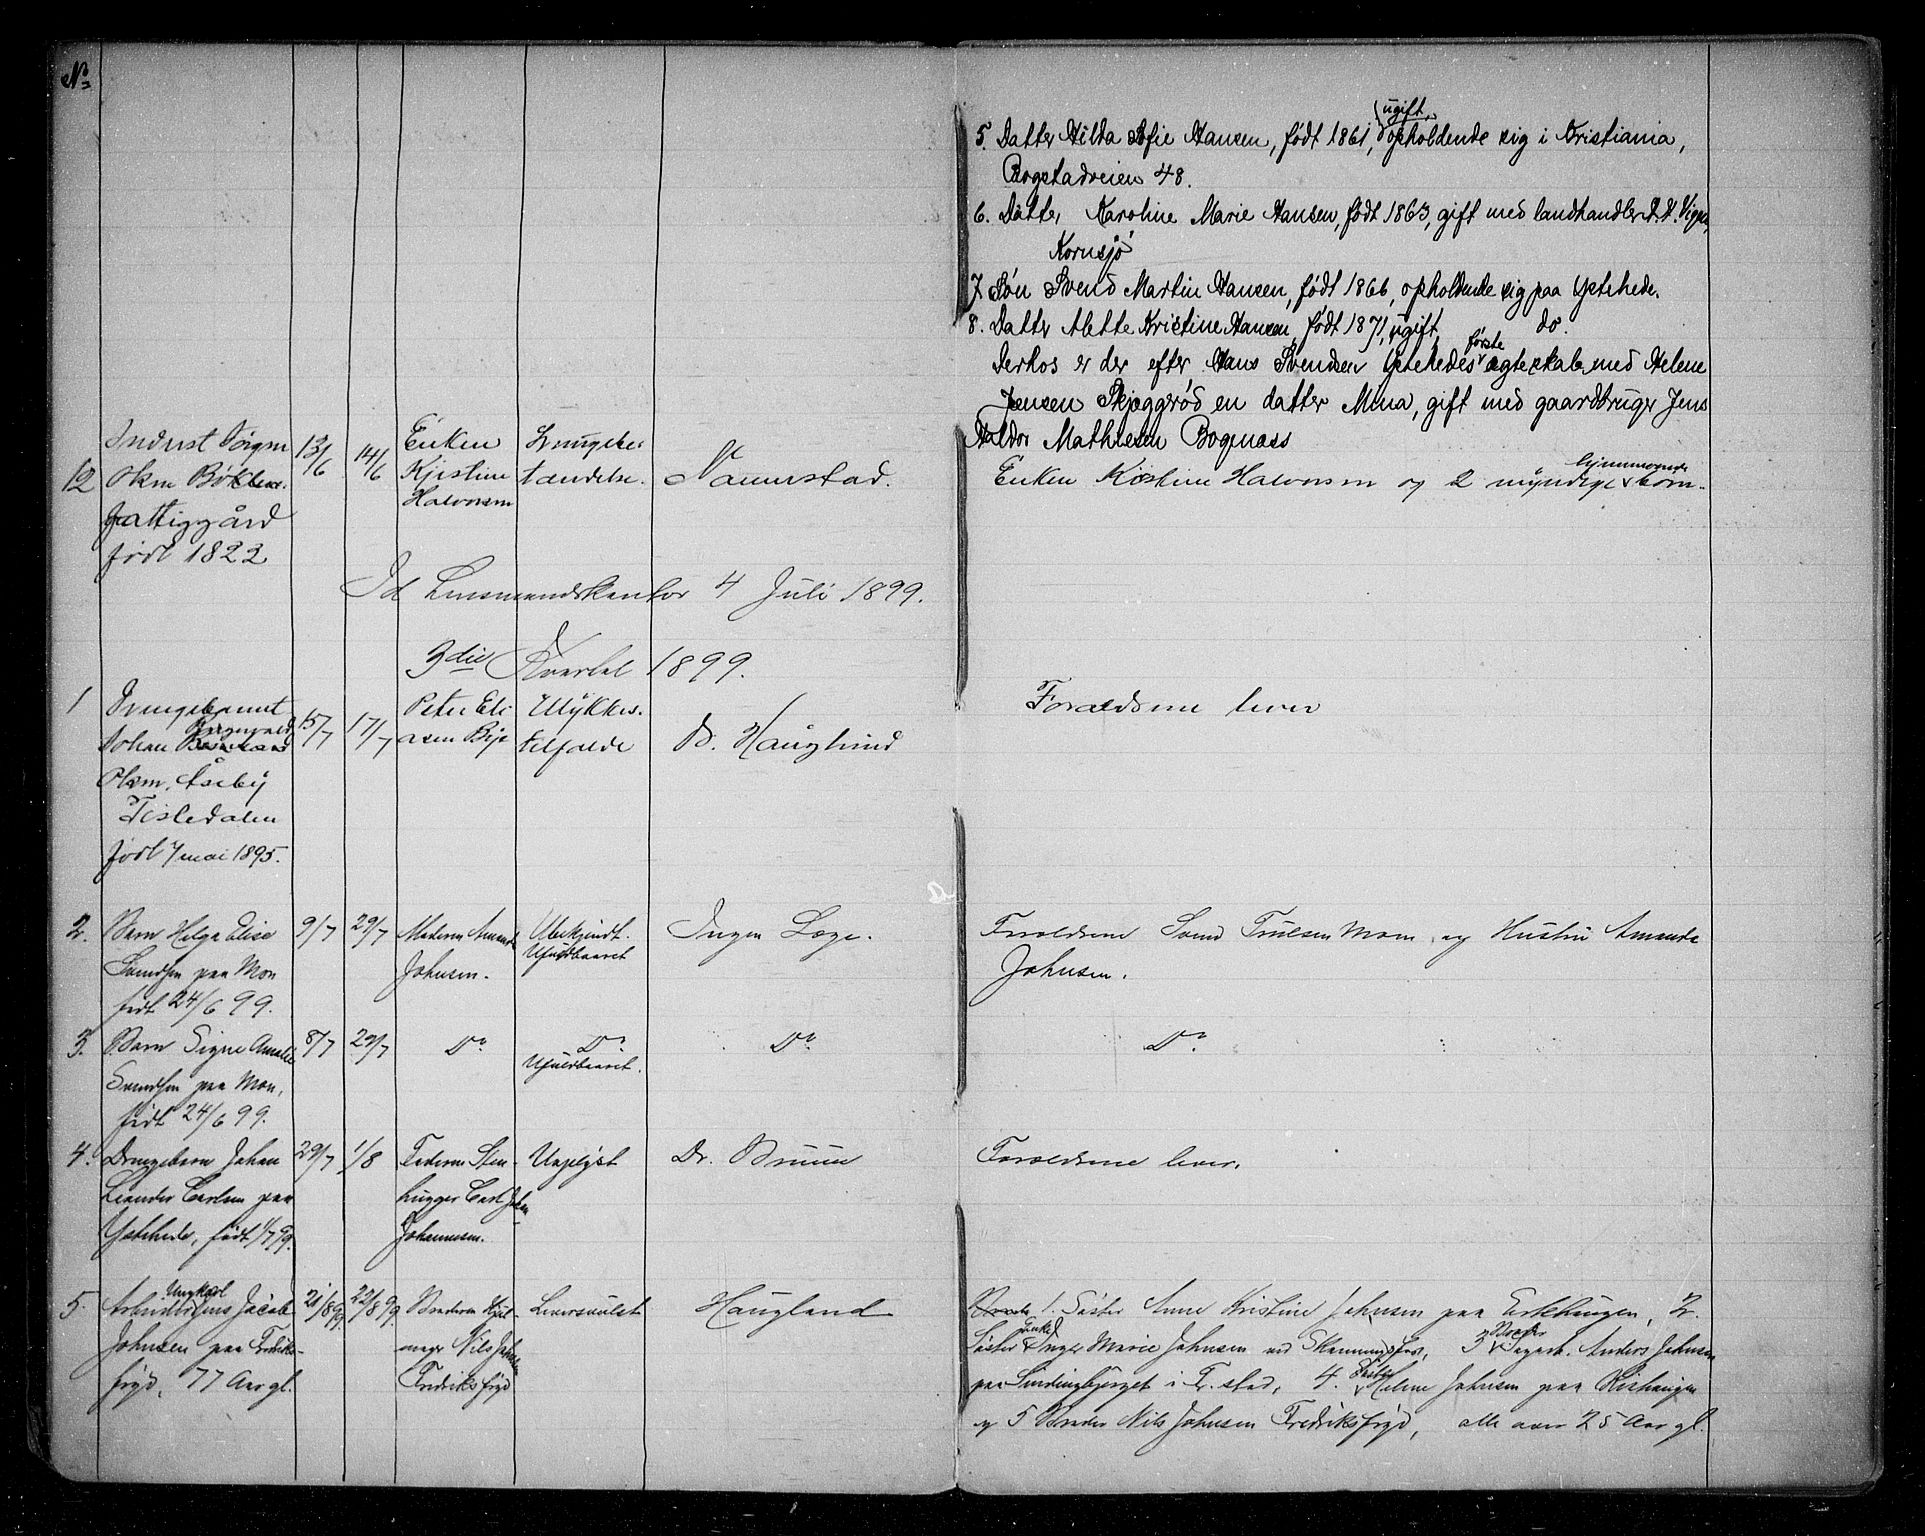 No
5. Datter Hilda Sofie Hansen, født 1861, ugift, opholdende sig i Kristiania,
Bogstadveien 48.
6. Datter Karoline Marie Hansen, født 1863, gift med landhandler
Kornsjø
7 Søn Svend Martin Hansen, født 1866, opholdende sig paa Ystehede.
8. Datter Mette Kristine Hansen, født 1871, ugift, do.
Derhos er der efter Hans Svendsen Ystehedes første ægteskab med Helene
Jensen Skjeggerød en datter Mina, gift med gaardbruger Jens
Haldor Mathiesen Bogmass
12 Inderst Jørgen 13/6 14/6 Enken
Olsen Kjerstine tændelse. Naumstad. Enken Kirstine Halvorsen og 2 myndige hjemmeværende børn.
fattiggård Halvorsen
født 1822
Id Lensmandskontor 4 Juli 1899.
3die Kvartal 1899.
1 Drengebarnet 15/7 17/7 Peter Eli Ulykkes- Forældrene lever
Johan asen Bye tilfælde D. Hauglund
Olsen, Aaeby
Tistedalen
født 7 mai 1895.
2. Barn Helga Elise 9/7 29/7 Moderen Amanda Ubekjendt. Ingen Læge. Forældrene Svend Truelsen Mon og Hustru Amanda
Svendsen paa Mon Johnsen. Ufuldbaaret Johnsen.
født 24/6 99.
3. Barn Signe Amalie 8/7 29/7 Do Do Do Do
Svendsen paa Mon, Ufuldbaaret.
født 24/6 99.
4. Drengebarn Johan 29/7 1/8 Faderen Sten- Uoplyst Dr. Bruun Forældrene lever.
Leander Carlsen paa hugger Carl Johan
Ystehede, født 1/7 99. Johannesen.
5. Ungkarl Jens Jacob 21/8 99. 22/8 99 Broderen Leversvulst Haugland 1. Søster Anne Kristine Johnsen paa 2.
Johnsen paa Fredriks- Nils Johnsen Søster Enke Inger Marie Johnsen ved 3 Broder Anders Johnsen
fryd, 77 Aar gl. Fredriksfryd paa i Fr.stad, 4. Søster Helene Johnsen paa Rishaugen
og 5 Broder Nils Johnsen Fredriksfryd, alle over 25 Aar gl.